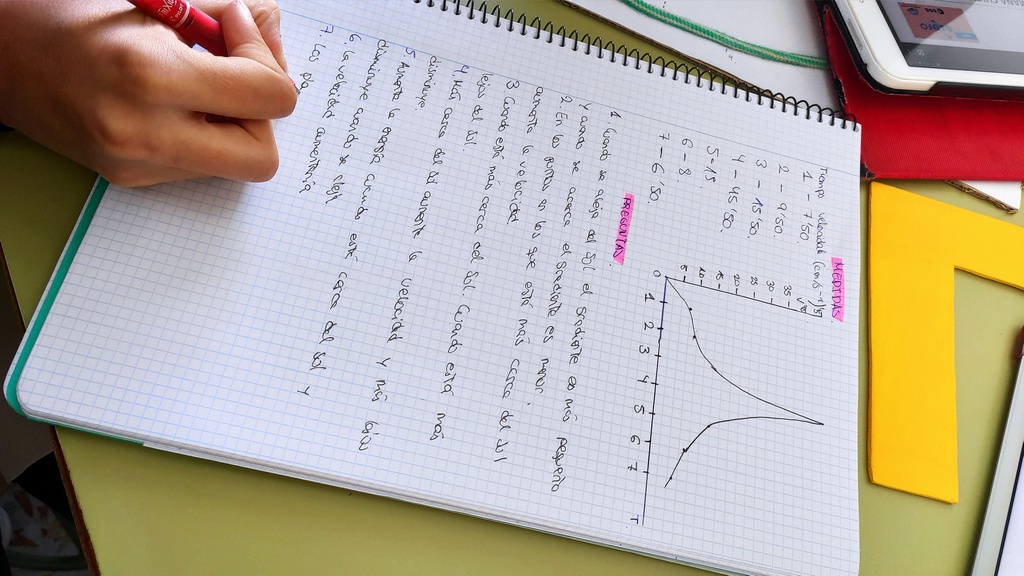 MEDIDAS
Tiempo velocidad (cm·s-1)
1 - 7'50
2 - 9'50.
3 - 15'50.
4 - 45'50.
5 - 15
6 - 8.
7 - 6'50
35
30
25
20
15
10
5
0 1 2 3 4 5 6 7 T
PREGUNTAS.
1. Cuando se aleja del Sol el gradiente es más pequeño
y cuando se acerca el gradiente es mayor.
2. En los puntos en los que está más cerca del sol
aumenta la velocidad.
3 Cuando está más cerca del Sol. Cuando está más
lejos del sol.
4. Más cerca del sol aumenta la velocidad y más lejos
disminuye.
5 Aumenta la energía cuando está cerca del sol y
disminuye cuando se aleja
6. La velocidad aumentaría
7. Los